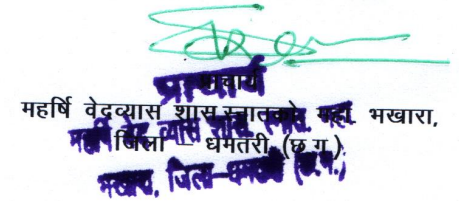 प्राचार्य
महर्षि वेदव्यास शास.स्नातको. महा. भखारा,
जिला – धमतरी (छ.ग.)
प्राचार्य
महर्षि वेद व्यास शास. स्नात. महा.
भखारा, जिला-धमतरी (छ.ग.)